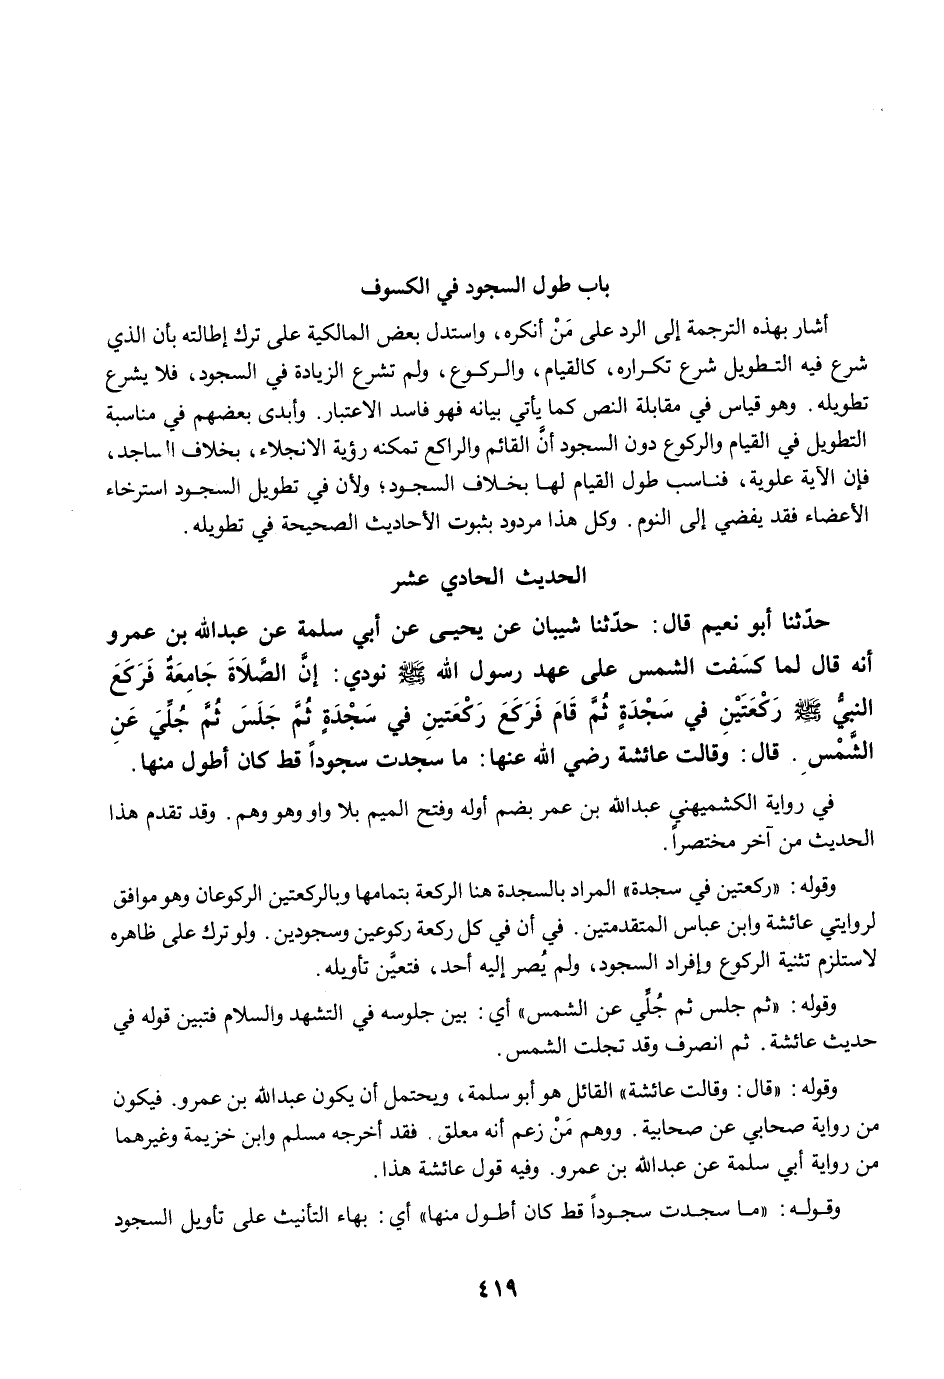 باب طول السجود في الكسوف
أشار بهذه الترجمة إلى الرد على مَنْ أنكره، واستدل بعض المالكية على ترك إطالته بأن الذي
شرع فيه التطويل شرع تكراره، كالقيام، والركوع، ولم تشرع الزيادة في السجود، فلا يشرع
تطويله. وهو قياس في مقابلة النص كما يأتي بيانه فهو فاسد الاعتبار. وأبدى بعضهم في مناسبة
التطويل في القيام والركوع دون السجود أنَّ القائم والراكع تمكنه رؤية الانجلاء، بخلاف الساجد،
فإن الآية علوية، فناسب طول القيام لها بخلاف السجود؛ ولأن في تطويل السجود استرخاء
الأعضاء فقد يفضي إلى النوم. وكل هذا مردود بثبوت الأحاديث الصحيحة في تطويله.
الحديث الحادي عشر
حدّثنا أبو نعيم قال: حدّثنا شيبان عن يحيى عن أبي سلمة عن عبدالله بن عمرو
أنه قال لما كسَفت الشمس على عهد رسول الله ﷺ نودي: إنَّ الصَّلاَةَ جَامِعَةٌ فَرَكَعَ
النبيُّ ﷺ رَكْعَتَيْنِ في سَجْدَةٍ ثُمَّ قَامَ فَرَكَعَ رَكْعَتين في سَجْدَةٍ ثُمَّ جَلَسَ ثُمَّ جُلِّيَ عَنِ
الشَّمْسِ. قال: وقالت عائشة رضي الله عنها: ما سجدت سجوداً قط كان أطول منها.
في رواية الكشميهني عبدالله بن عمر بضم أوله وفتح الميم بلا واو وهو وهم. وقد تقدم هذا
الحديث من آخر مختصراً.
وقوله: «ركعتين في سجدة» المراد بالسجدة هنا الركعة بتمامها وبالركعتين الركوعان وهو موافق
لروايتي عائشة وابن عباس المتقدمتين. في أن في كل ركعة ركوعين وسجودين. ولو ترك على ظاهره
لاستلزم تثنية الركوع وإفراد السجود، ولم يُصر إليه أحد، فتعيَّن تأويله.
وقوله: «ثم جلس ثم جُلِّي عن الشمس» أي: بين جلوسه في التشهد والسلام فتبين قوله في
حديث عائشة. ثم انصرف وقد تجلت الشمس.
وقوله: «قال: وقالت عائشة» القائل هو أبو سلمة، ويحتمل أن يكون عبدالله بن عمرو. فيكون
من رواية صحابي عن صحابية. ووهم مَنْ زعم أنه معلق. فقد أخرجه مسلم وابن خزيمة وغيرهما
من رواية أبي سلمة عن عبدالله بن عمرو. وفيه قول عائشة هذا.
وقوله: «ما سجدت سجوداً قط كان أطول منها» أي: بهاء التأنيث على تأويل السجود
٤١٩